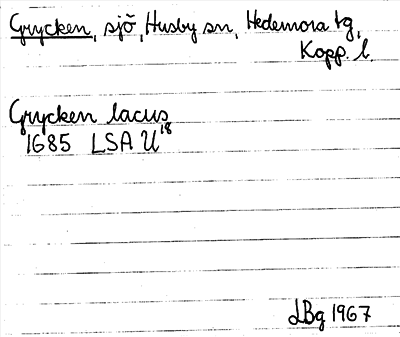 Grycken, sjö, Husby sn, Hedemora tg,
Kopp. l.
Grycken lacus
1685 LSA U18
LBg 1967